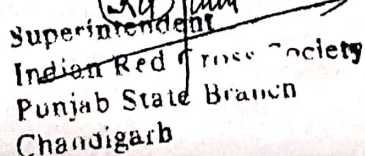 Superintendent
Indian Red Cross Society
Punjab State Branch
Chandigarh